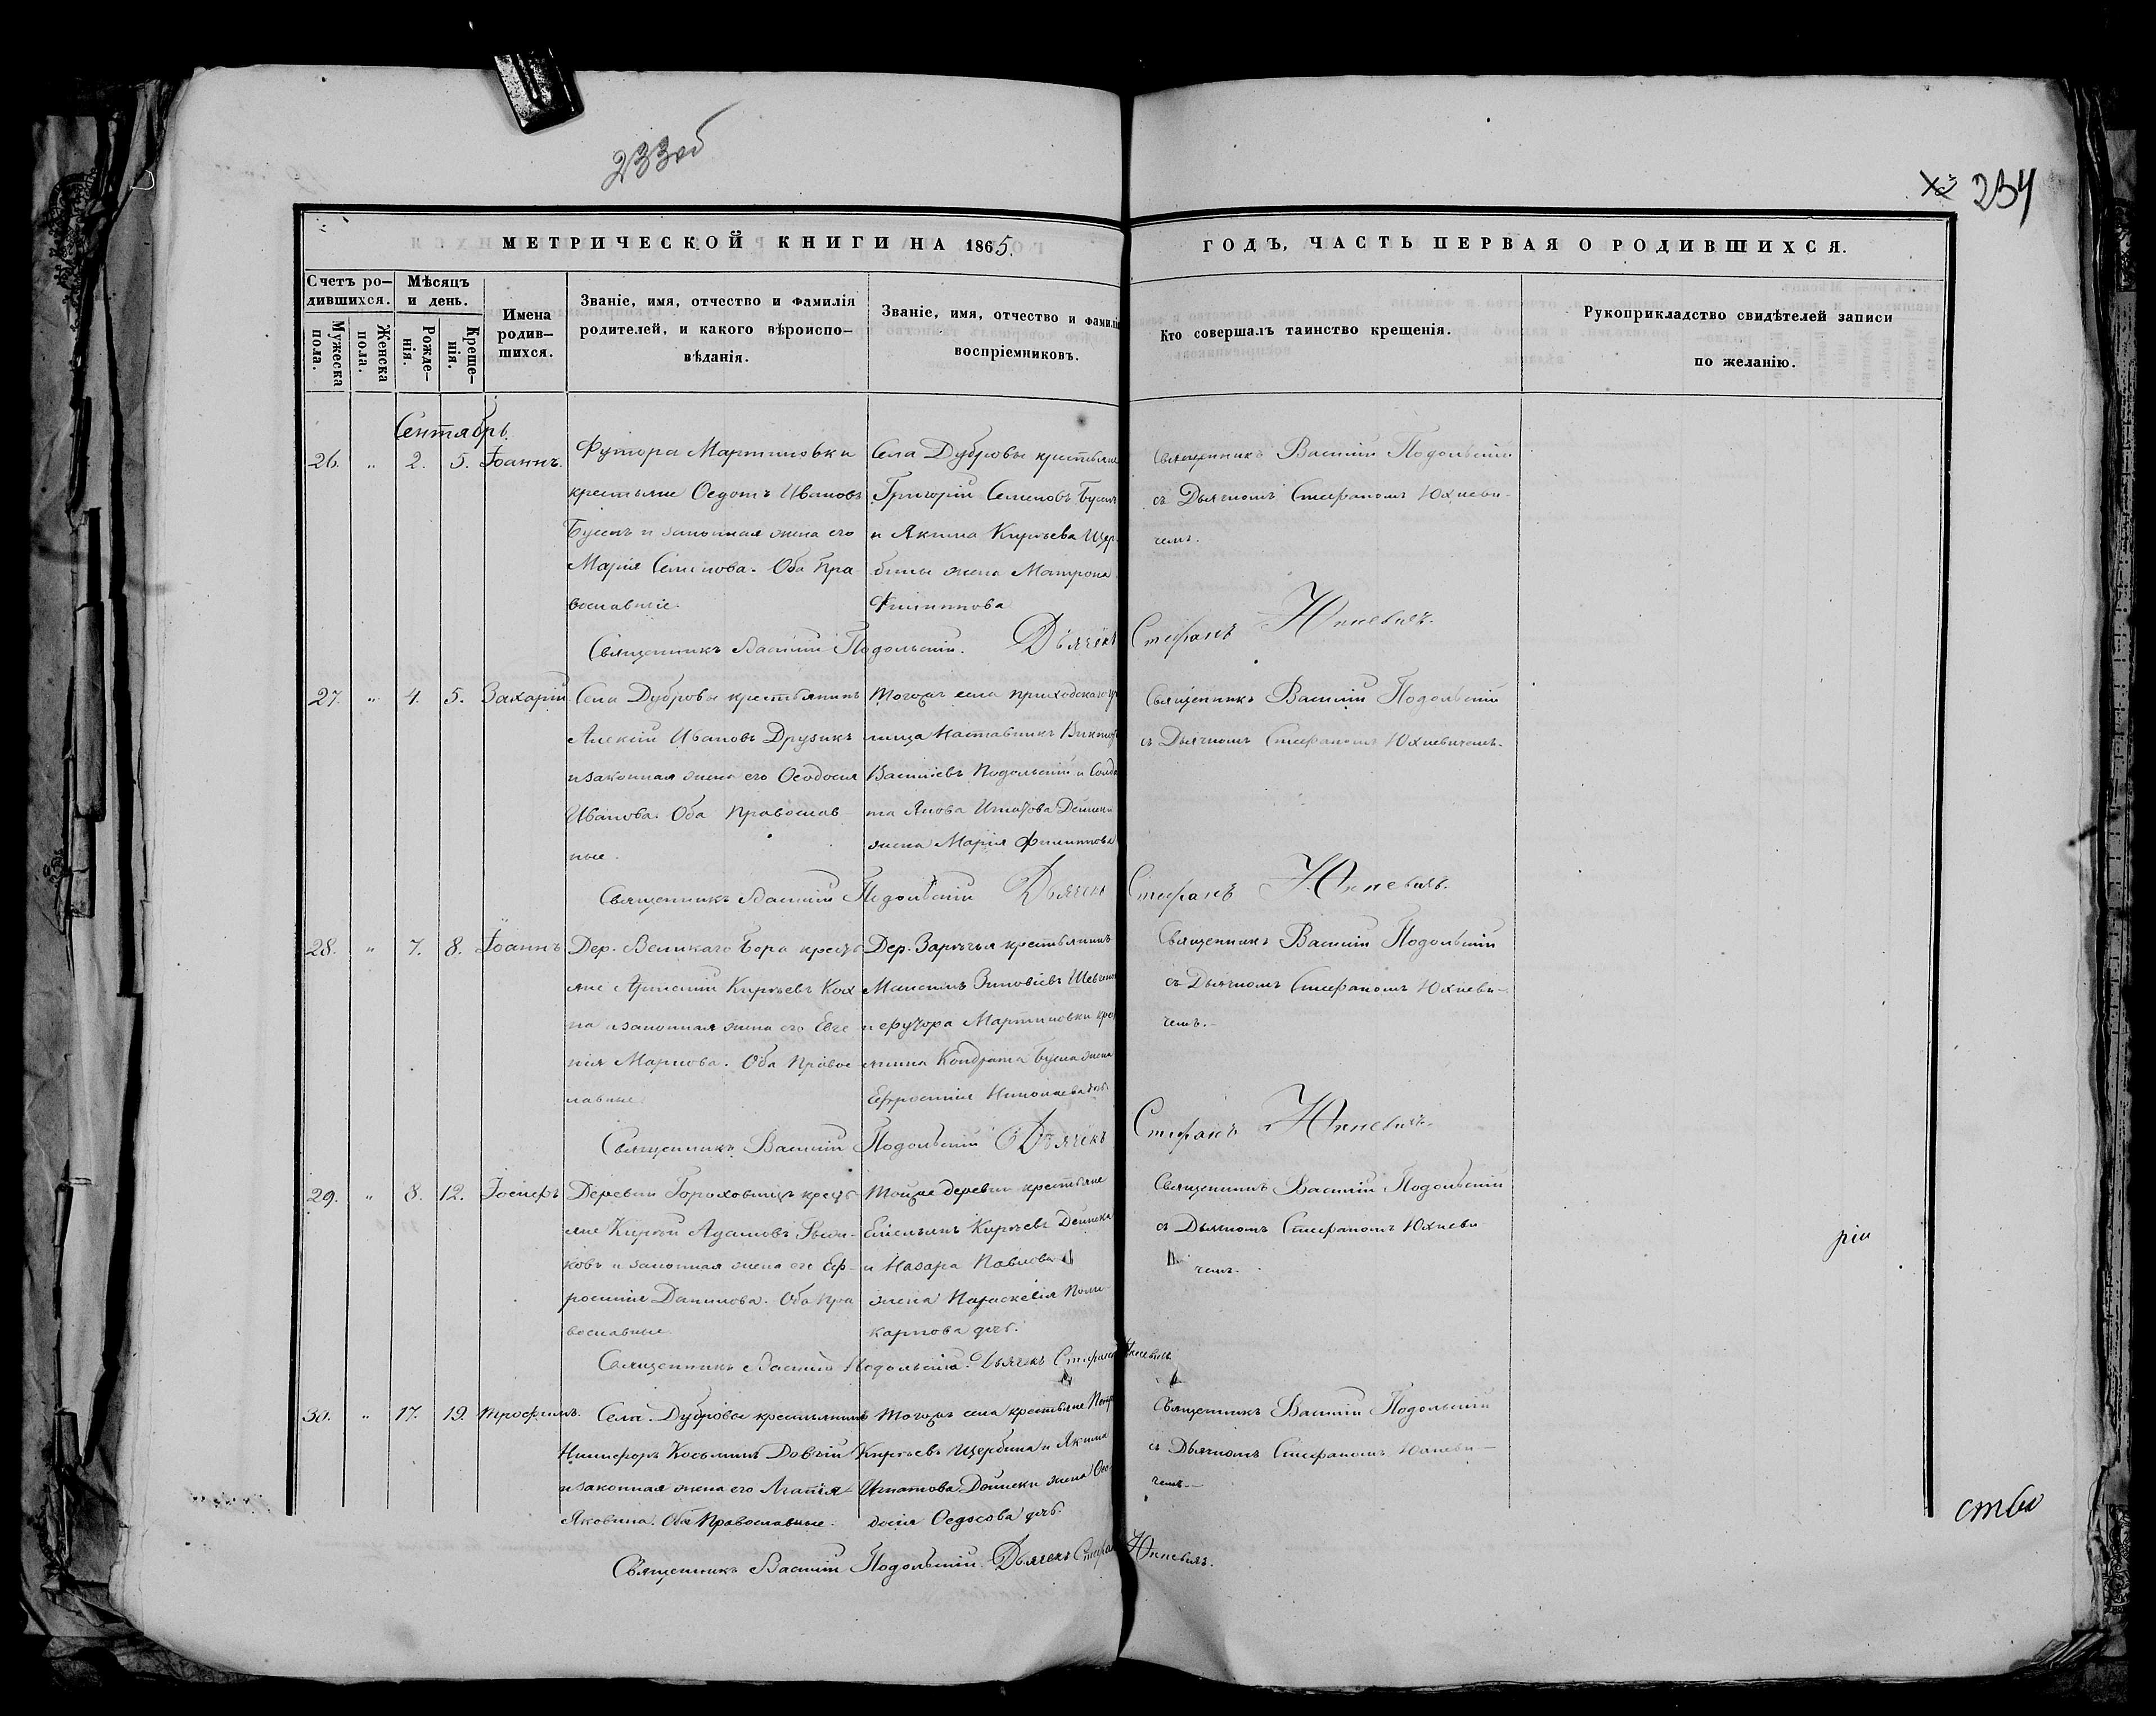 233об
234
МЕТРИЧЕСКОЙ КНИГИ НА 1865. ГОДЪ, ЧАСТЬ ПЕРВАЯ О РОДИВШИХСЯ.
Счетъ ро-
дившихся.
Мужеска
пола.
Женска
пола.
Мѣсяцъ
и день.
Рожде-
нія.
Креще-
нія.
Имена
родив-
шихся.
Званіе, имя, отчество и фамилія
родителей, и какого вѣроиспо-
вѣданія.
Званіе, имя, отчество и фамилія
воспріемниковъ.
Кто совершалъ таинство крещенія.
Рукоприкладство свидѣтелей записи
по желанію.
Сентябрь.
26. " 2. 5. Іоаннъ.
Футора Мартиновки
крестьяне Федотъ Ивановъ
и законная жена его
Марія Семенова. Оба Пра-
вославніе.
Села Дубровы крестьяне
Григорій Семеновъ
и Якима Кирѣева Щер-
бины жена Матрона
Филиппова
Священникъ Василій Подольскій
съ Дьячкомъ Стефаномъ Юхневи-
чемъ.
Священникъ Василій Подольскій. Дьячекъ Стефанъ Юхневичъ.
27. " 4. 5. Захарій
Села Дубровы крестьянинъ
Алексій Ивановъ Друзикъ
и законная жена его Феодосія
Иванова. Оба Православ-
ные.
Тогожъ села приходскаго учи
лища Наставникъ Викторъ
Василіевъ Подольскій и Солда
та Якова Игнатова Дейнеки
жена Марія Филиппова
Священникъ Василій Подольскій
съ Дьячкомъ Стефаномъ Юхневичемъ.
Священникъ Василій Подольскій Дьячекъ Стефанъ Юхневичъ.
28. " 7. 8. Іоаннъ
Дер. Великаго Бора крестья
яне Кирѣевъ
и законная жена его Евге
нія Маркова. Оба Правос
лавные
Дер. Зарѣчья крестьянинъ
Максимъ Зиновіевъ Шевченко
и футора Мартиновки крес
янина Кондрата жена
Ефросинія Николаева дочь.
Священникъ Василій Подольскій
съ Дьячкомъ Стефаномъ Юхневи-
чемъ.
Священникъ Василій Подольскій Дьячекъ Стефанъ Юхневичъ.
29. " 8. 12. Іосифъ
Деревни Гороховищъ кресть
яне Кирѣй Адамовъ
и законная жена его Еф-
росинія Данилова. Оба Пра
вославные.
Тойже деревни крестьяне
Емельянъ Кирѣевъ Дейнека
и Назара Павлова
жена Параскевія Поли
карпова дочь.
Священникъ Василій Подольскій
съ Дьячкомъ Стефаномъ Юхневи
чемъ.
рія
Священникъ Василій Подольскій. Дьячекъ Стефанъ Юхневичъ
30. " 17. 19. Трофимъ.
Села Дубровы крестьянинъ
Никифоръ Косьминъ Довгій
и законная жена его Агапія
Яковина. Оба Православные.
Тогожъ села крестьяне Петръ
Кирѣевъ Щербина и Якима
Игнатова Дейнеки жена Фео-
досія Федосова дочь.
Священникъ Василій Подольскій
съ Дьячкомъ Стефаномъ Юхневи-
чемъ.
ства
Священникъ Василій Подольскій. Дьячекъ Стефанъ Юхневичъ.